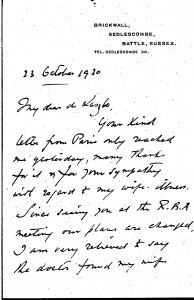 BRICKWALL,
SEDLESCOMBE,
BATTLE, SUSSEX.
TEL. SEDLESCOMBE 20.
23 October 1920
My dear de Laszlo,
Your kind
letter from Paris only reached
me yesterday, many thanks
for it & for your sympathy
with regard to my wife's illness.
Since seeing you at the R.B.A
meeting our plans are changed,
I am very relieved to say
the doctor found my wife